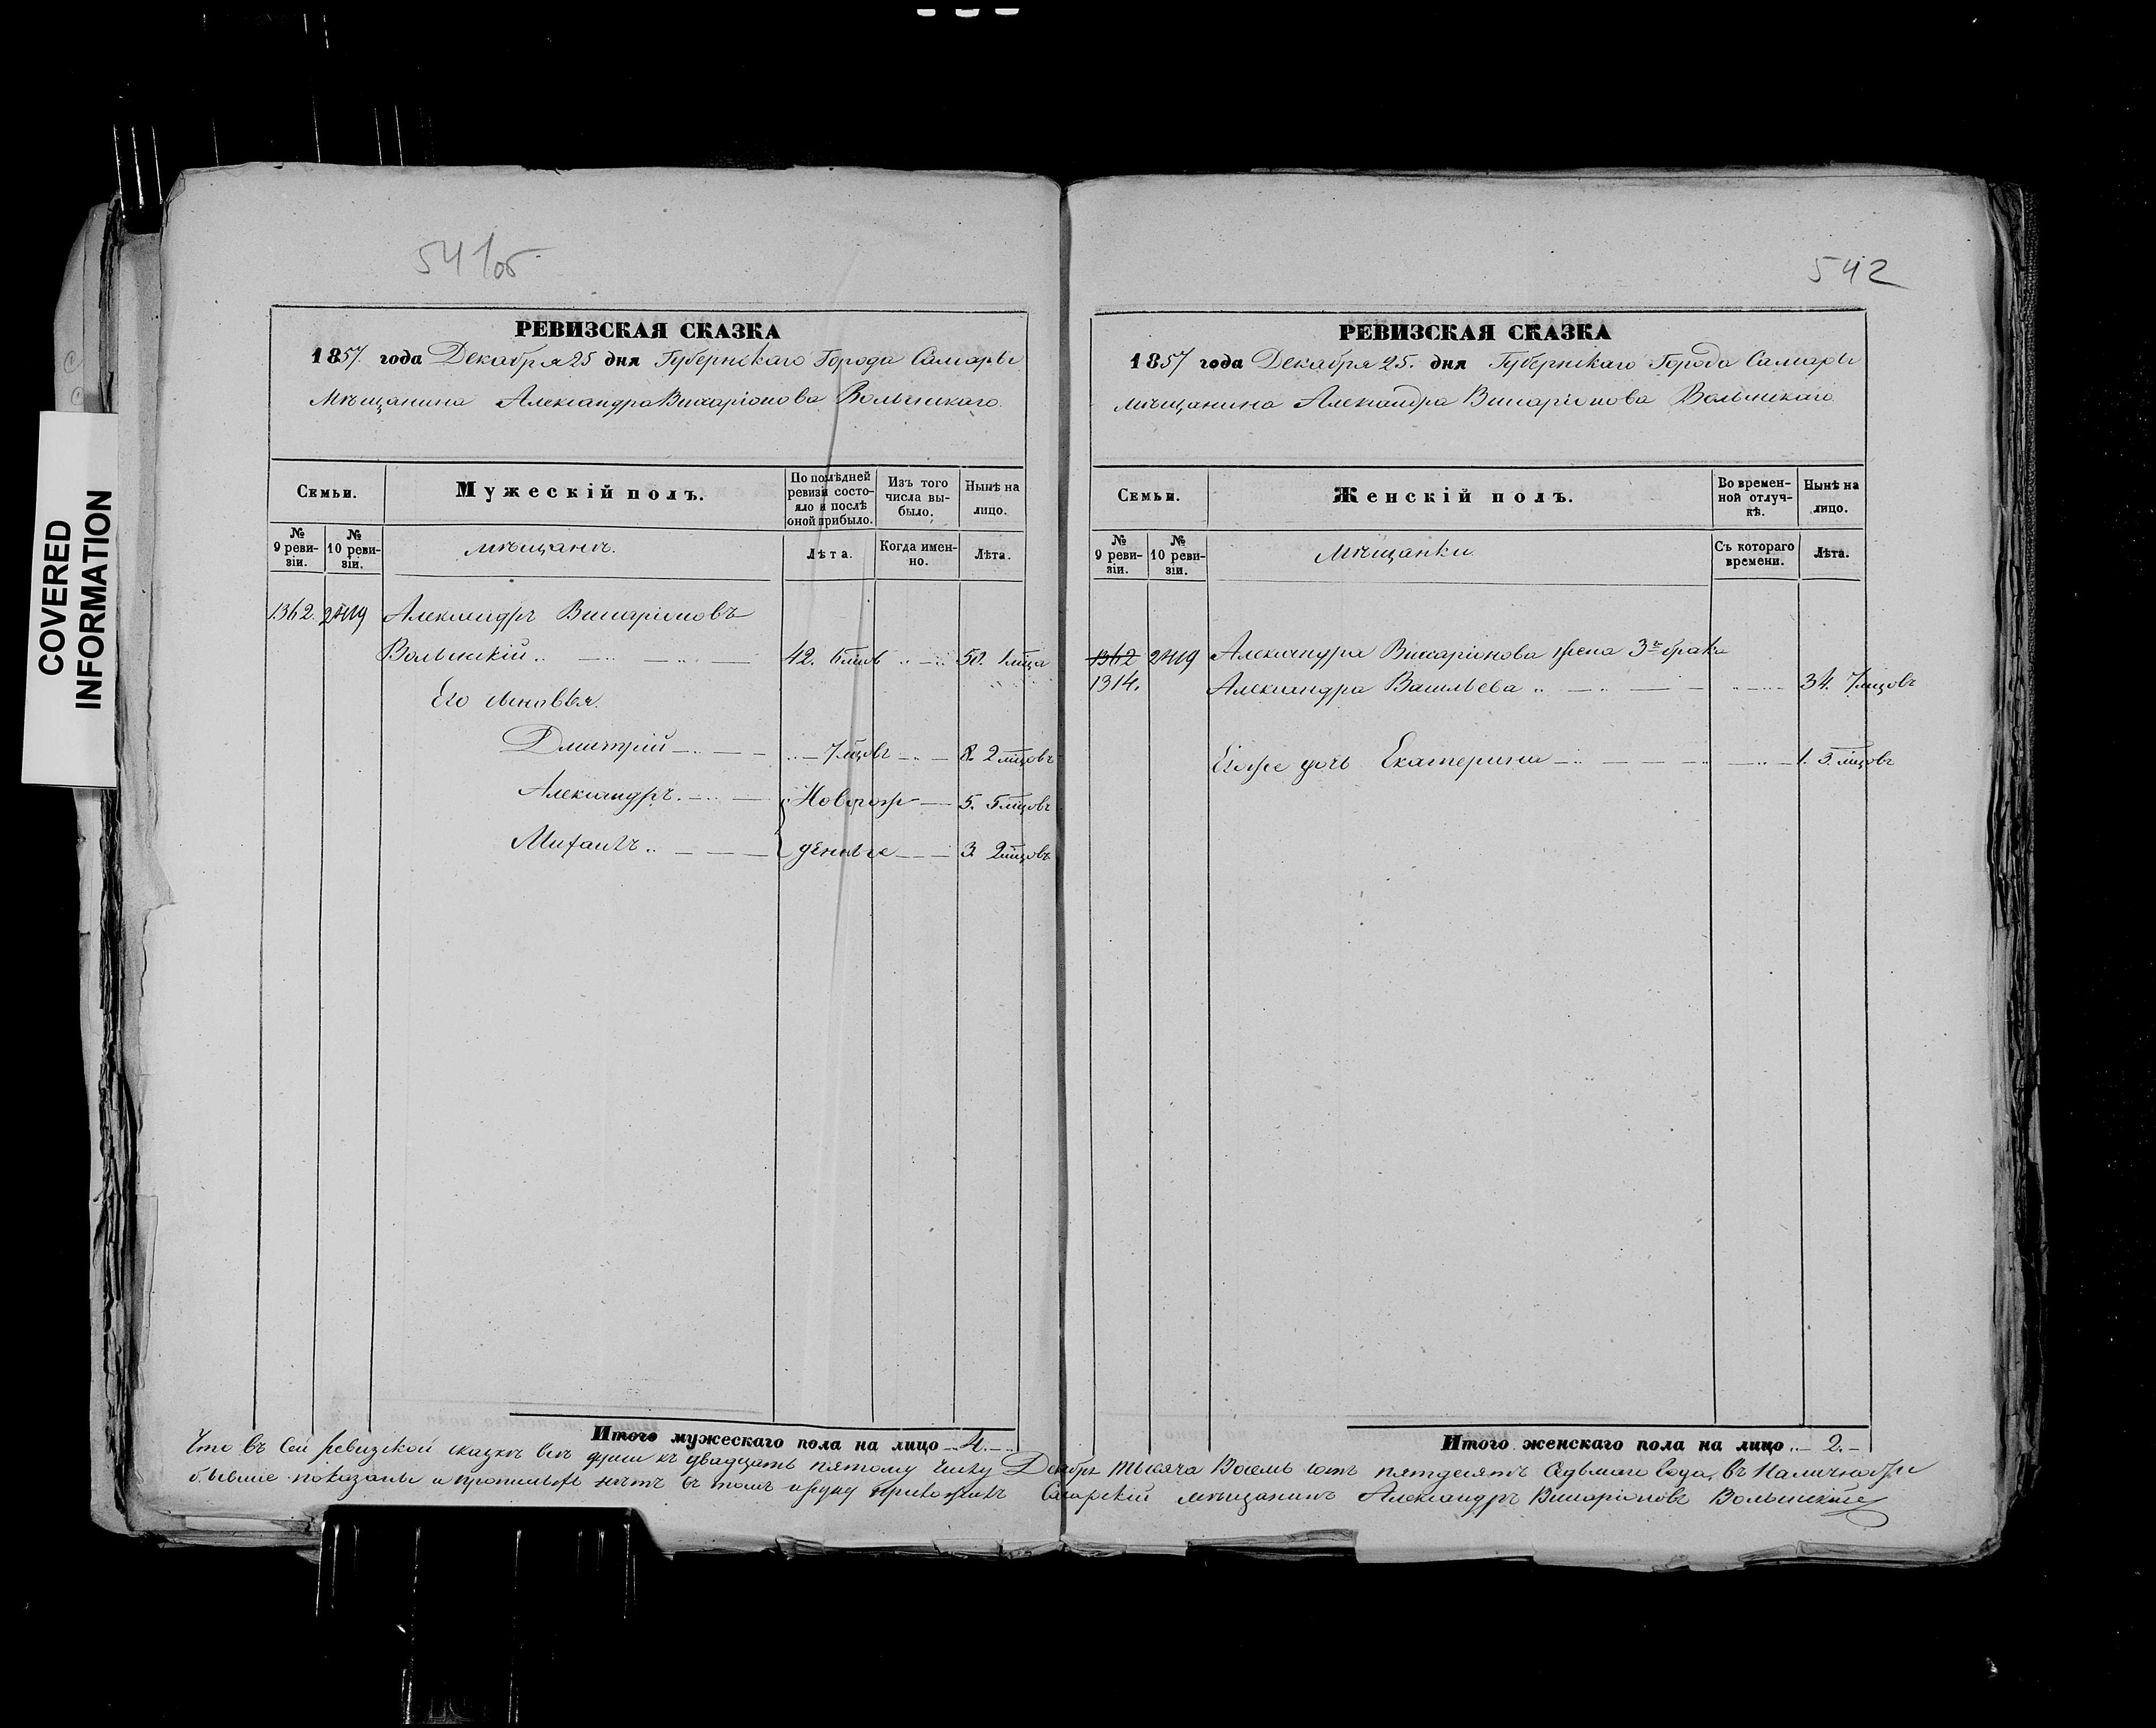 COVERED
INFORMATION
541об
РЕВИЗСКАЯ СКАЗКА
1857. года Декабря 25 дня Губернскаго Города Самары
Мѣщанина Александра Висаріонова Волынскаго.
Семьи.
Мужескій полъ.
По послѣдней ревизіи состояло и послѣ оной прибыло.
Изъ того числа выбыло.
Нынѣ на лицо.
№ 9 ревизіи.
№ 10 ревизіи.
мѣщанъ.
Лѣта.
Когда именно.
Лѣта.
1362. Александръ Висаріоновъ
Волынскій 42. 50.
Его сыновья.
Дмитрій 7 мцовъ 8. 2 мцовъ
Александръ. Новорож 5. 5 мцовъ
Михаилъ денные 3. 2 мцовъ
Итого мужескаго пола на лицо 4.
542
РЕВИЗСКАЯ СКАЗКА
1857 года Декабря 25. дня Губернскаго Города Самары
мѣщанина Александра Висаріонова Волынскаго
Семьи.
Женскій полъ.
Во временной отлучкѣ.
Нынѣ на лицо.
№ 9 ревизіи.
№ 10 ревизіи.
Мѣщанки
Съ котораго времени.
Лѣта.
1362 Александра Висаріонова жена 3го брака
1314. Александра Васильева 34. 7 мцовъ
Его же дочь Екатерина 1. 3. мцовъ
Итого женскаго пола на лицо 2.
Что въ сей ревизской сказкѣ всѣ души къ двадцать пятому числу Декабря тысяча восемь сотъ пятдесятъ седьмаго года, въ наличности
бывшіе показаны и прописныхъ нѣтъ въ томъ и руку приложилъ Самарскій мѣщанинъ Александръ Висаріоновъ Волынскій